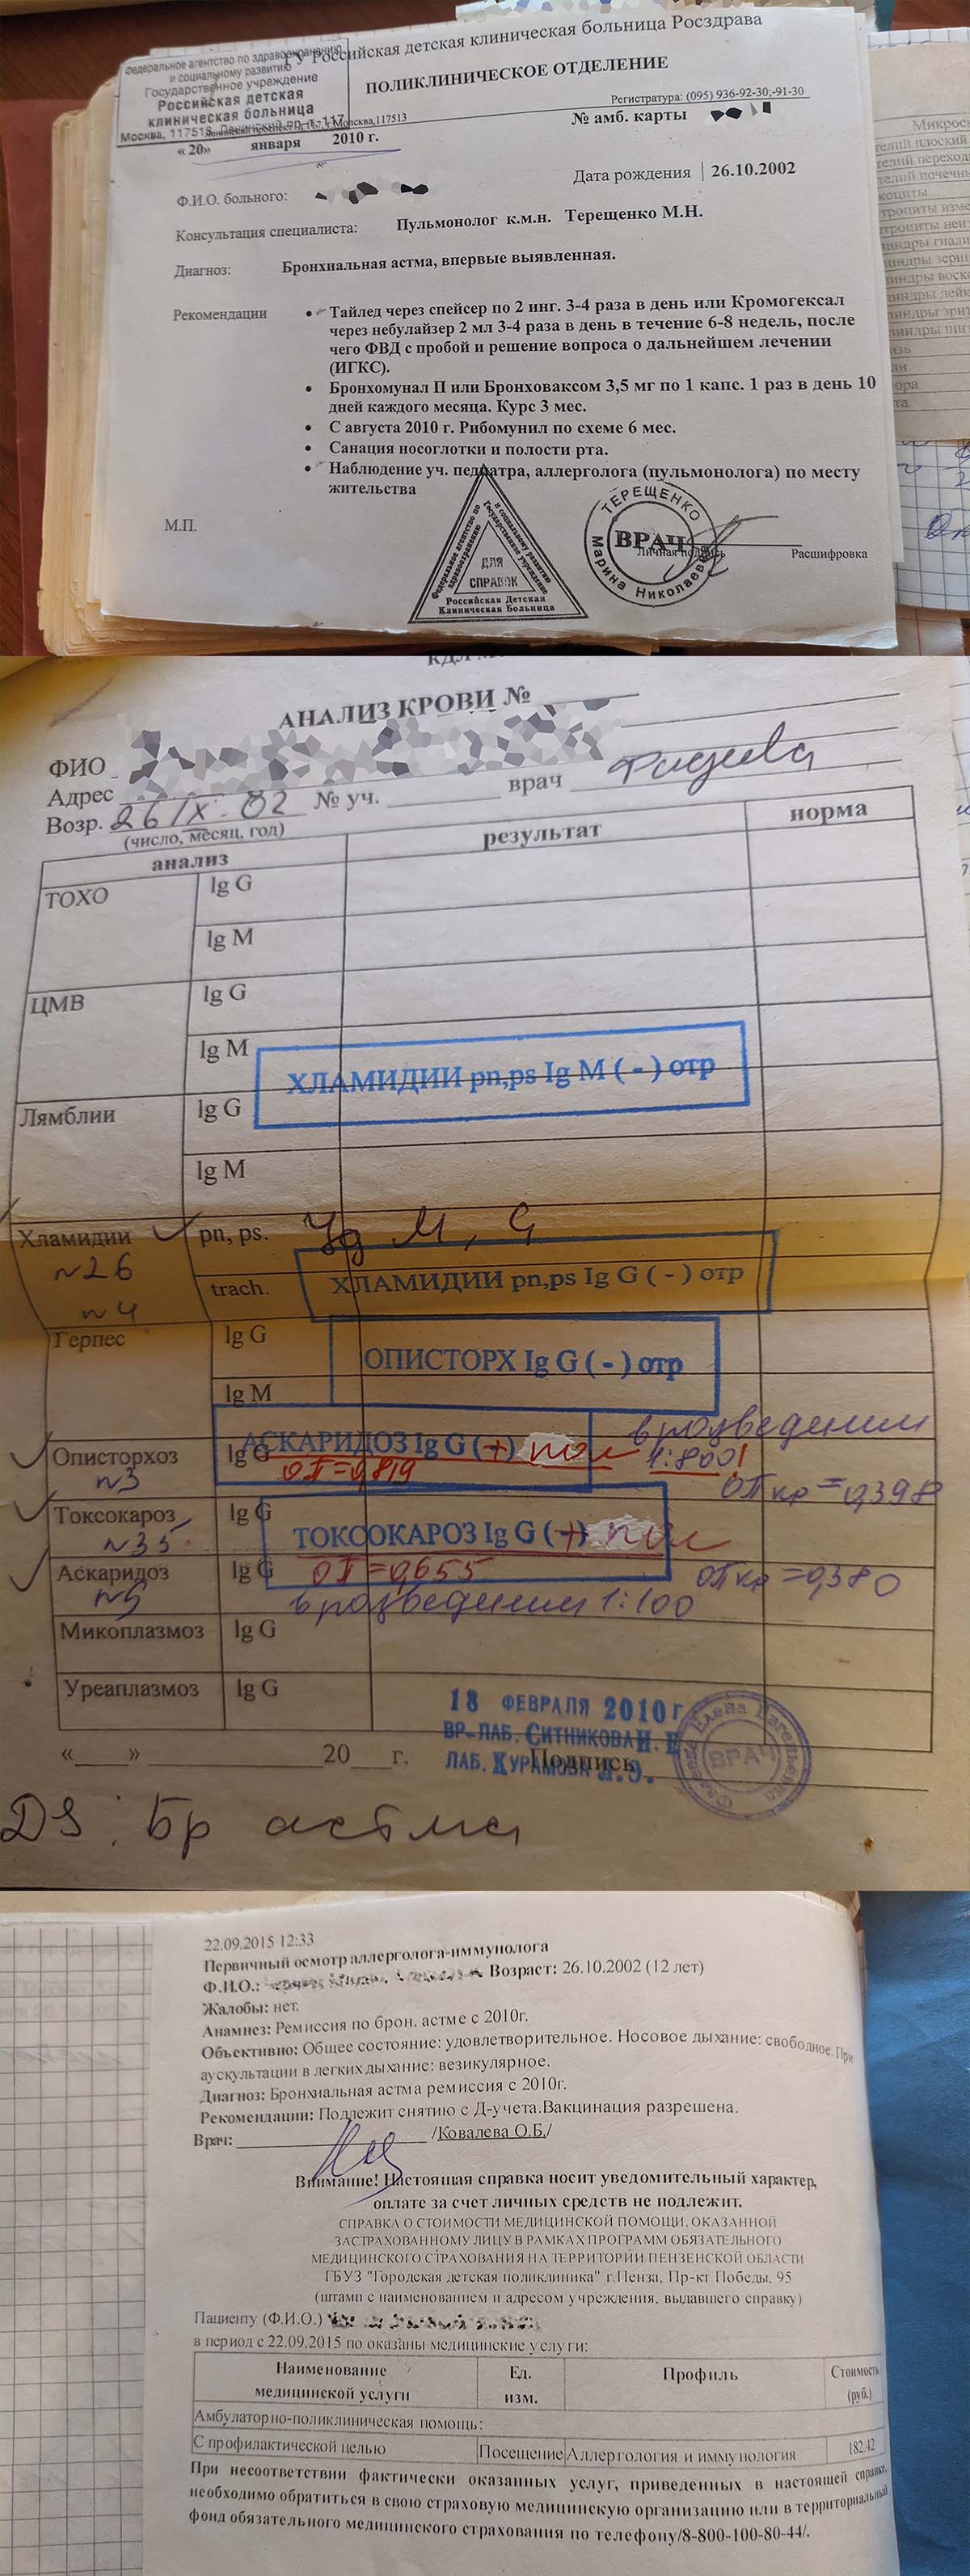 Федеральное агентство по здравоохранению
и социальному развитию
Государственное учреждение
Российская детская
клиническая больница
Москва, 117513, Ленинский пр-т, 117
ГУ Российская детская клиническая больница Росздрава
ПОЛИКЛИНИЧЕСКОЕ ОТДЕЛЕНИЕ
Регистратура: (095) 936-92-30;-91-30
Ленинский проспект, 117, г.Москва,117513
№ амб. карты
« 20» января 2010 г.
Дата рождения 26.10.2002
Ф.И.О. больного:
Консультация специалиста: Пульмонолог к.м.н. Терещенко М.Н.
Диагноз: Бронхиальная астма, впервые выявленная.
Рекомендации • Тайлед через спейсер по 2 инг. 3-4 раза в день или Кромогексал
через небулайзер 2 мл 3-4 раза в день в течение 6-8 недель, после
чего ФВД с пробой и решение вопроса о дальнейшем лечении
(ИГКС).
• Бронхомунал П или Бронховаксом 3,5 мг по 1 капс. 1 раз в день 10
дней каждого месяца. Курс 3 мес.
• С августа 2010 г. Рибомунил по схеме 6 мес.
• Санация носоглотки и полости рта.
• Наблюдение уч. педиатра, аллерголога (пульмонолога) по месту
жительства
М.П.
Федеральное агентство по здравоохранению и социальному развитию Государственное учреждение
ДЛЯ
СПРАВОК
Российская Детская
Клиническая Больница
ТЕРЕЩЕНКО
ВРАЧ
Марина Николаевна
Личная подпись
Расшифровка
АНАЛИЗ КРОВИ №
ФИО
Адрес
Возр. 26 IX. 02 № уч. врач Фадеева
(число, месяц, год)
анализ результат норма
ТОХО Ig G
Ig M
ЦМВ Ig G
Ig M
ХЛАМИДИИ pn,ps Ig M ( - ) отр
Лямблии Ig G
Ig M
Хламидии pn, ps. Ig M, G
№26
trach. ХЛАМИДИИ pn,ps Ig G ( - ) отр
№4
Герпес Ig G
ОПИСТОРХ Ig G ( - ) отр
Ig M
АСКАРИДОЗ Ig G (+) пол в розведении
Описторхоз Ig G ОП=0,819 1:800!
№3 ОПкр=0,398
Токсокароз Ig G ТОКСОКАРОЗ Ig G (+) пол
№35
Аскаридоз Ig G ОП=0,655 ОПкр=0,380
№5 в розведении 1:100
Микоплазмоз Ig G
Уреаплазмоз Ig G
18 ФЕВРАЛЯ 2010 г
ВР-ЛАБ. СИТНИКОВА Н. Е
« » 20 г. Подпись
ЛАБ. КУРАМОВА Л.Э.
ВРАЧ
DS: Бр астма
22.09.2015 12:33
Первичный осмотр аллерголога-иммунолога
Ф.И.О.: Возраст: 26.10.2002 (12 лет)
Жалобы: нет.
Анамнез: Ремиссия по брон. астме с 2010г.
Объективно: Общее состояние: удовлетворительное. Носовое дыхание: свободное. При
аускультации в легких дыхание: везикулярное.
Диагноз: Бронхиальная астма ремиссия с 2010г.
Рекомендации: Подлежит снятию с Д-учета.Вакцинация разрешена.
Врач: /Ковалева О.Б./
Внимание! Настоящая справка носит уведомительный характер,
оплате за счет личных средств не подлежит.
СПРАВКА О СТОИМОСТИ МЕДИЦИНСКОЙ ПОМОЩИ, ОКАЗАННОЙ
ЗАСТРАХОВАННОМУ ЛИЦУ В РАМКАХ ПРОГРАММ ОБЯЗАТЕЛЬНОГО
МЕДИЦИНСКОГО СТРАХОВАНИЯ НА ТЕРРИТОРИИ ПЕНЗЕНСКОЙ ОБЛАСТИ
ГБУЗ "Городская детская поликлиника" г.Пенза, Пр-кт Победы, 95
(штамп с наименованием и адресом учреждения, выдавшего справку)
Пациенту (Ф.И.О.)
в период с 22.09.2015 по оказаны медицинские услуги:
Наименование медицинской услуги Ед. изм. Профиль Стоимость (руб.)
Амбулаторно-поликлиническая помощь:
С профилактической целью Посещение Аллергология и иммунология 182.42
При несоответствии фактически оказанных услуг, приведенных в настоящей справке,
необходимо обратиться в свою страховую медицинскую организацию или в территориальный
фонд обязательного медицинского страхования по телефону/8-800-100-80-44/.